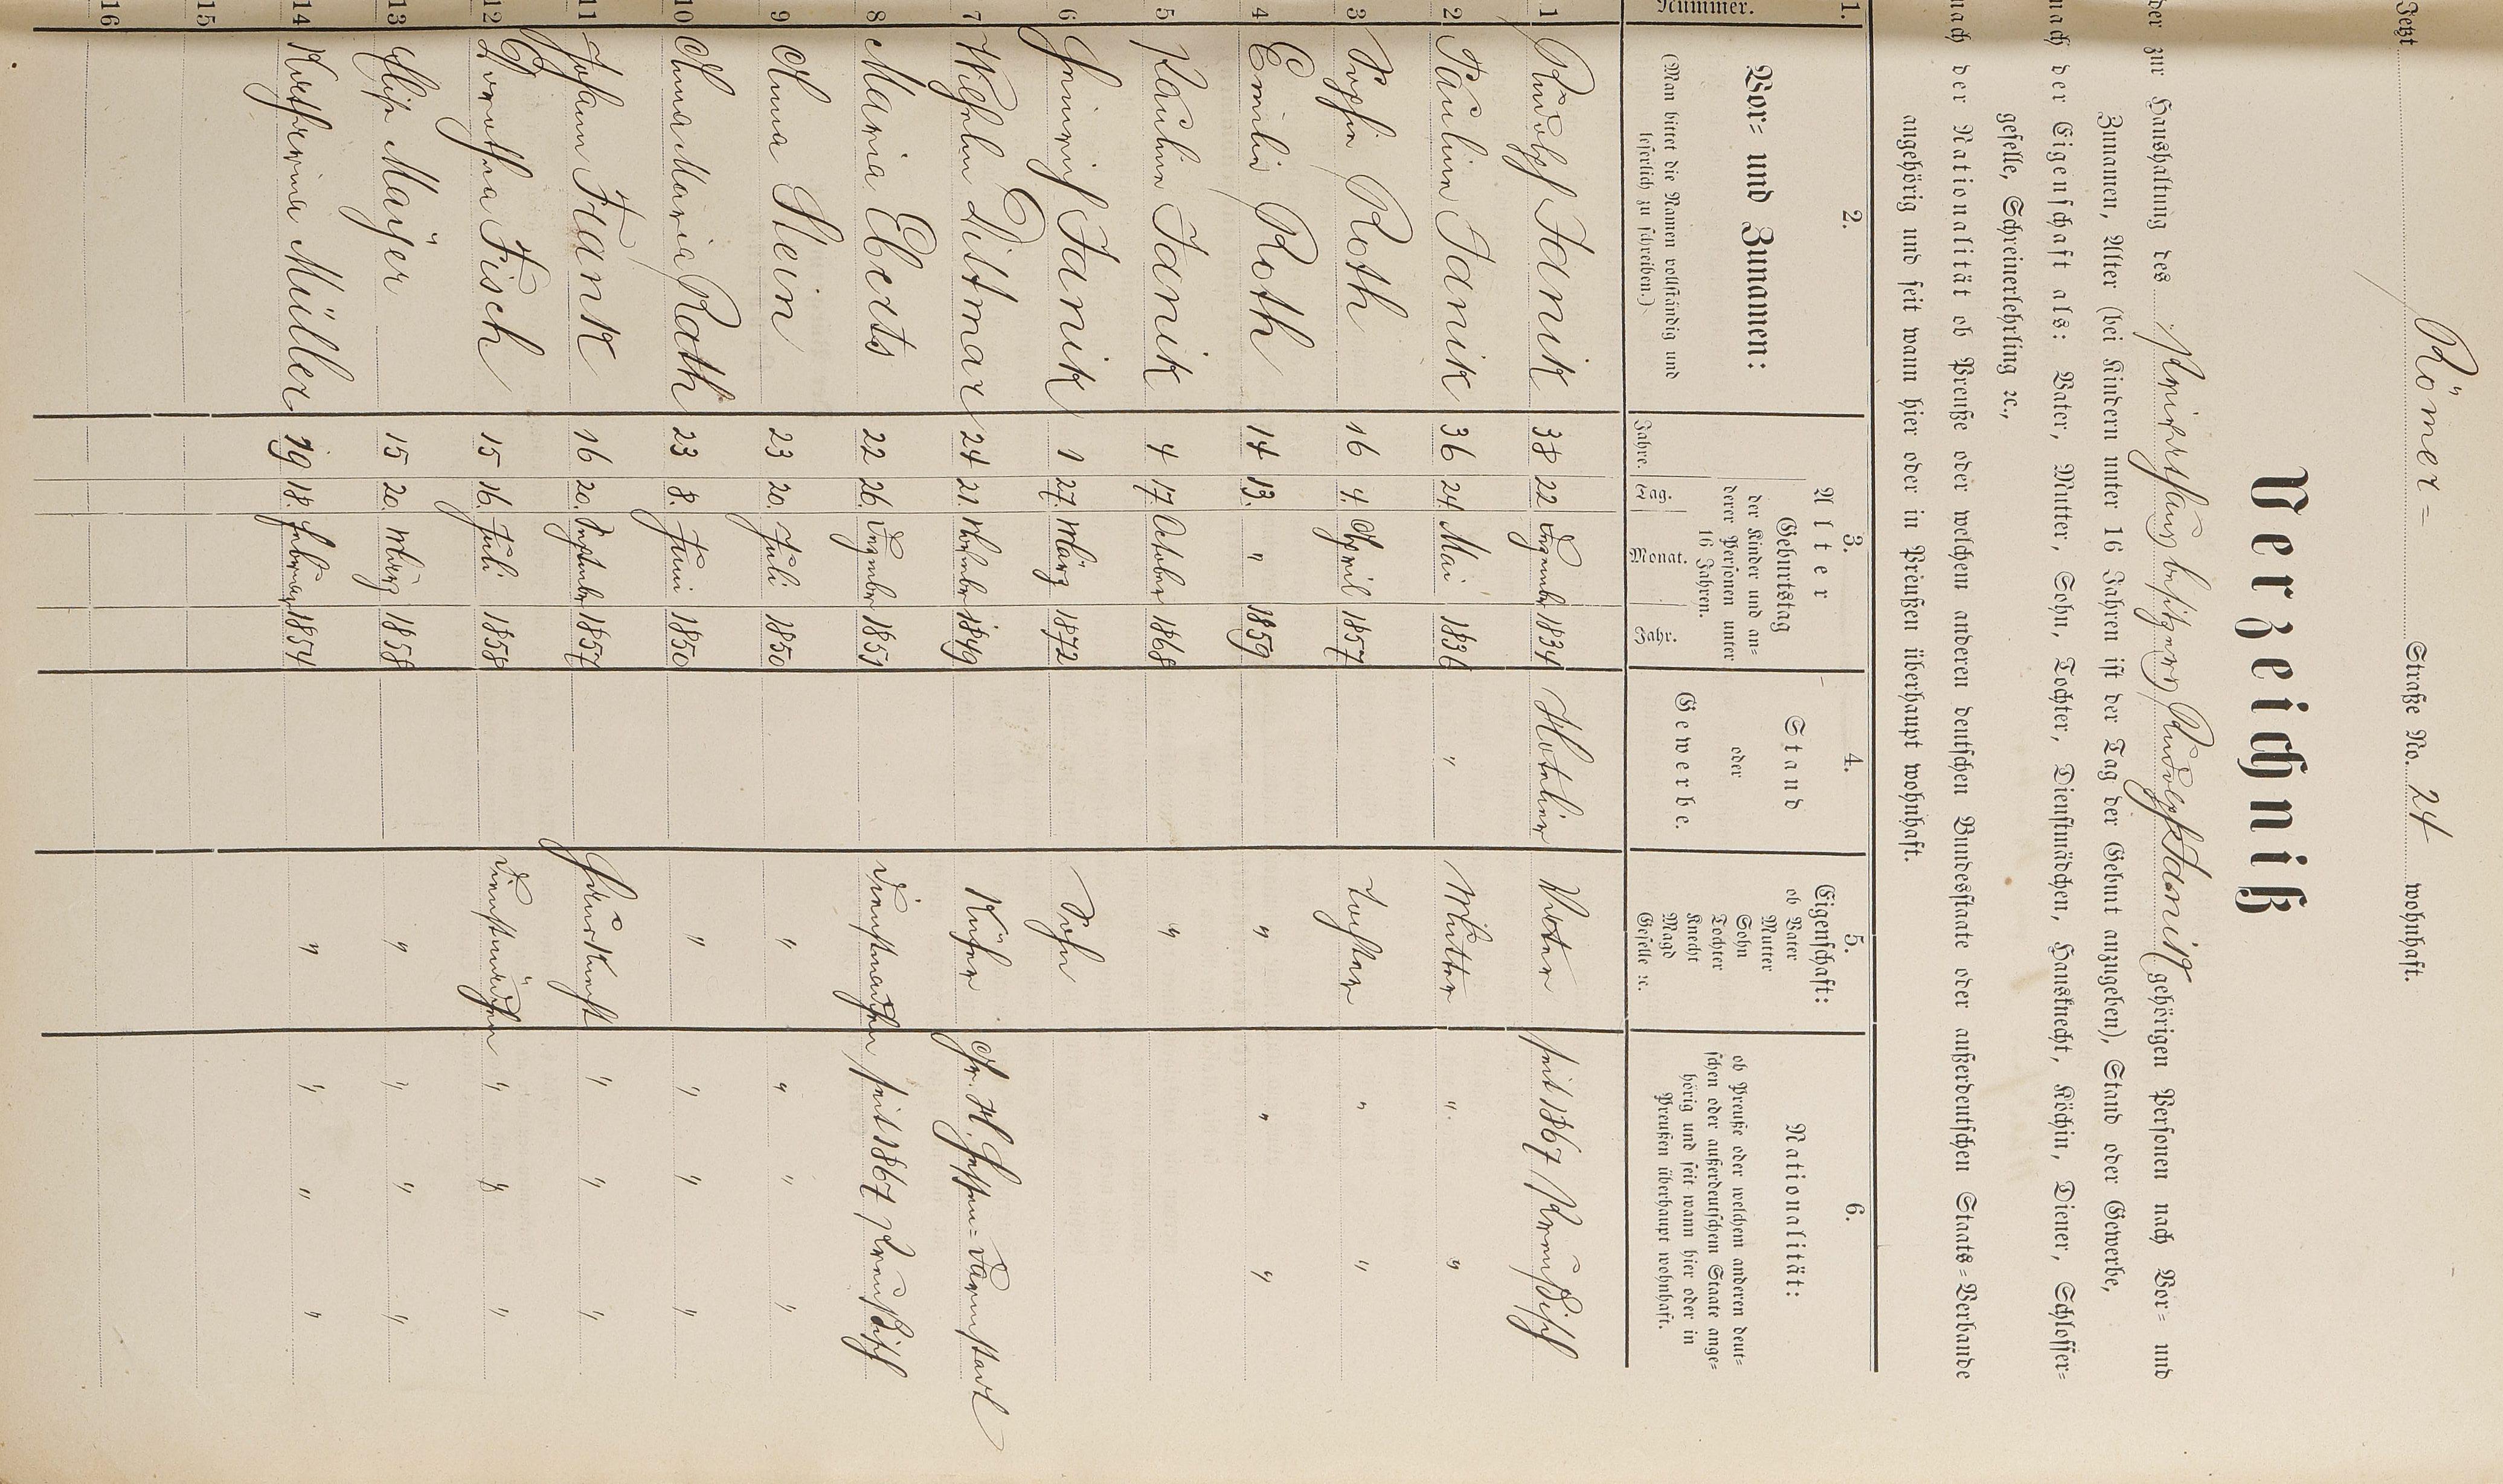 Jetzt Römer= Straße No. 24 wohnhaft.
Verzeichniß
der zur Haushaltung des Rudolf Janik gehörigen Personen nach Vor= und
Zunamen, Alter (bei Kindern unter 16 Jahren ist der Tag der Geburt anzugeben), Stand oder Gewerbe,
nach der Eigenschaft als: Vater, Mutter, Sohn, Tochter, Dienstmädchen, Hausknecht, Köchin, Diener, Schlosser=
geselle, Schreinerlehrling ꝛc.,
nach der Nationalität ob Preuße oder welchem anderen deutschen Bundesstaate oder außerdeutschen Staats=Verbande
angehörig und seit wann hier oder in Preußen überhaupt wohnhaft.
1. 2. 3. 4. 5. 6.
Nummer.
Vor= und Zunamen:
(Man bittet die Namen vollständig und
leserlich zu schreiben.)
Alter
Geburtstag
der Kinder und an=
derer Personen unter
16 Jahren.
Jahre. Tag. Monat. Jahr.
Stand
oder
Gewerbe.
Eigenschaft:
ob Vater
Mutter
Sohn
Tochter
Knecht
Magd
Geselle ꝛc.
Nationalität:
ob Preuße oder welchem anderen deut=
schen oder außerdeutschem Staate ange=
hörig und seit wann hier oder in
Preußen überhaupt wohnhaft.
1 Rudolf Janik 38 22 Dezember 1834 Hotelier Vater seit 1867 Preußisch
2 Pauline Janik 36 24 Mai 1836 " Mutter " "
3 Sophie Roth 16 4. April 1857 Tochter " "
4 Emilie Roth 14 13. " 1859 " " "
5 Pauline Janik 4 17 October 1868 "
6 Heinrich Janik 1 27. März 1872 Sohn
7 Wilhelm Dittmar 24 21. November 1849 Küfer Gr. H. Hessen=Darmstadt
8 Maria Eberts 22 26. Dezember 1851 Dienstmädchen seit 1867 Preußisch
9 Anna Stein 23 20. Juli 1850 " " " "
10 Anna Maria Rath 23 8. Juni 1850 " " " "
11 Johann Frank 16 20. September 1857 Hausknecht " " "
12 Dorothea Fisch 15 16. Juli 1858 Dienstmädchen " " "
13 Elise Mayer 15 20. März 1858 " " " "
14 Katharina Müller 19 18. Februar 1854 " " " "
15
16